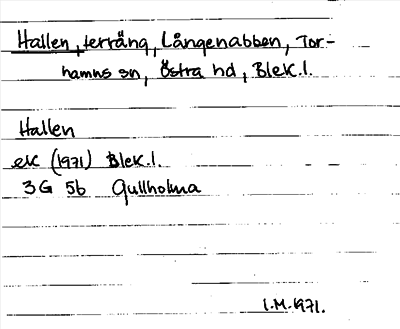 Hallen, terräng, Långenabben, Tor-
hamns sn, Östra hd, Blek.l.
Hallen
ek (1971) Blek.l.
3G 5b Gullholma
I.M. 1971.